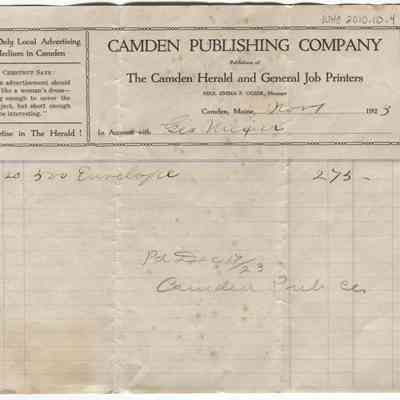 WHC 2010.10.4
Only Local Advertising
Medium in Camden
CHESTNUT SAYS:
n advertisement should
like a woman's dress—
ng enough to cover the
ject, but short enough
be interesting."
rtise in The Herald!
CAMDEN PUBLISHING COMPANY
Publishers of
The Camden Herald and General Job Printers
MRS. EMMA F. OGIER, Manager
Camden, Maine, Nov 1 1923
In Account with Geo
20 500 Envelope 275-
Pd Dec 23
Camden Pub Co